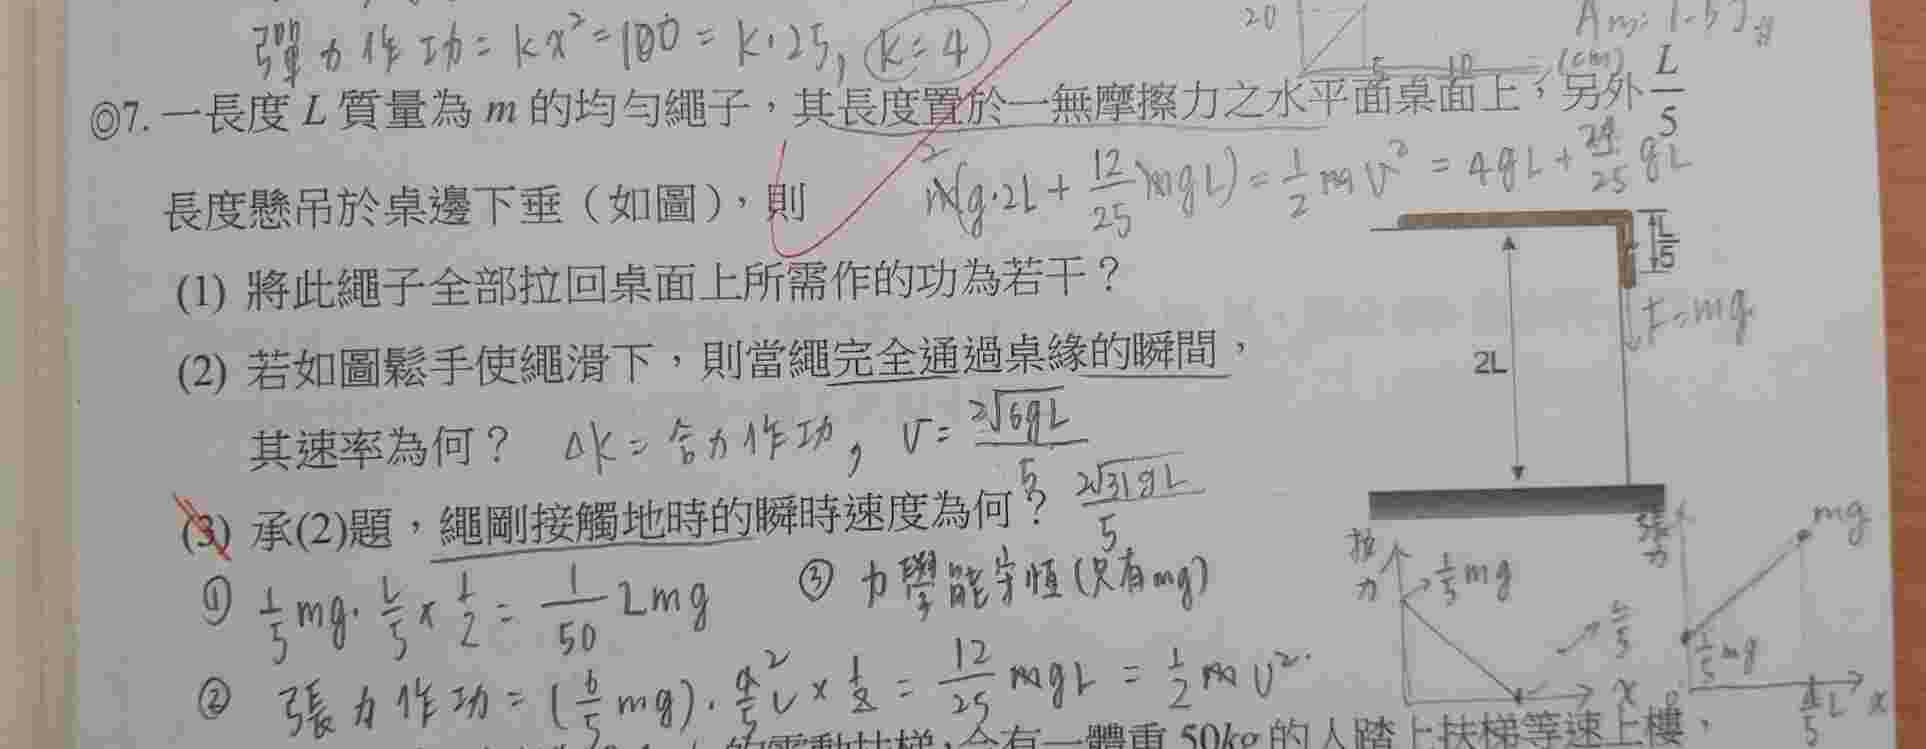 彈力作功 = kx² = 100 = k·25, k=4
20
5 10 (cm)
◎7. 一長度 L 質量為 m 的均勻繩子，其長度置於一無摩擦力之水平面桌面上，另外 L/5
長度懸吊於桌邊下垂（如圖），則
m(g·2L + 12/25 mgL) = 1/2 mv² = 4gL + 24/25 gL
(1) 將此繩子全部拉回桌面上所需作的功為若干？
L/5
F=mg
2L
(2) 若如圖鬆手使繩滑下，則當繩完全通過桌緣的瞬間，
其速率為何？ ΔK = 合力作功, v = 2√6gL/5
(3) 承(2)題，繩剛接觸地時的瞬時速度為何？ 2√31gL/5
① 1/5 mg · L/5 × 1/2 = 1/50 Lmg
③ 力學能守恒(只有mg)
拉力 1/5 mg L/5 x
張力 mg 1/5 mg 4/5 L x
② 張力作功 = (6/5 mg) · 4/5 L × 1/2 = 12/25 mgL = 1/2 mv²
有一體重 50kg 的人踏上扶梯等速上樓，